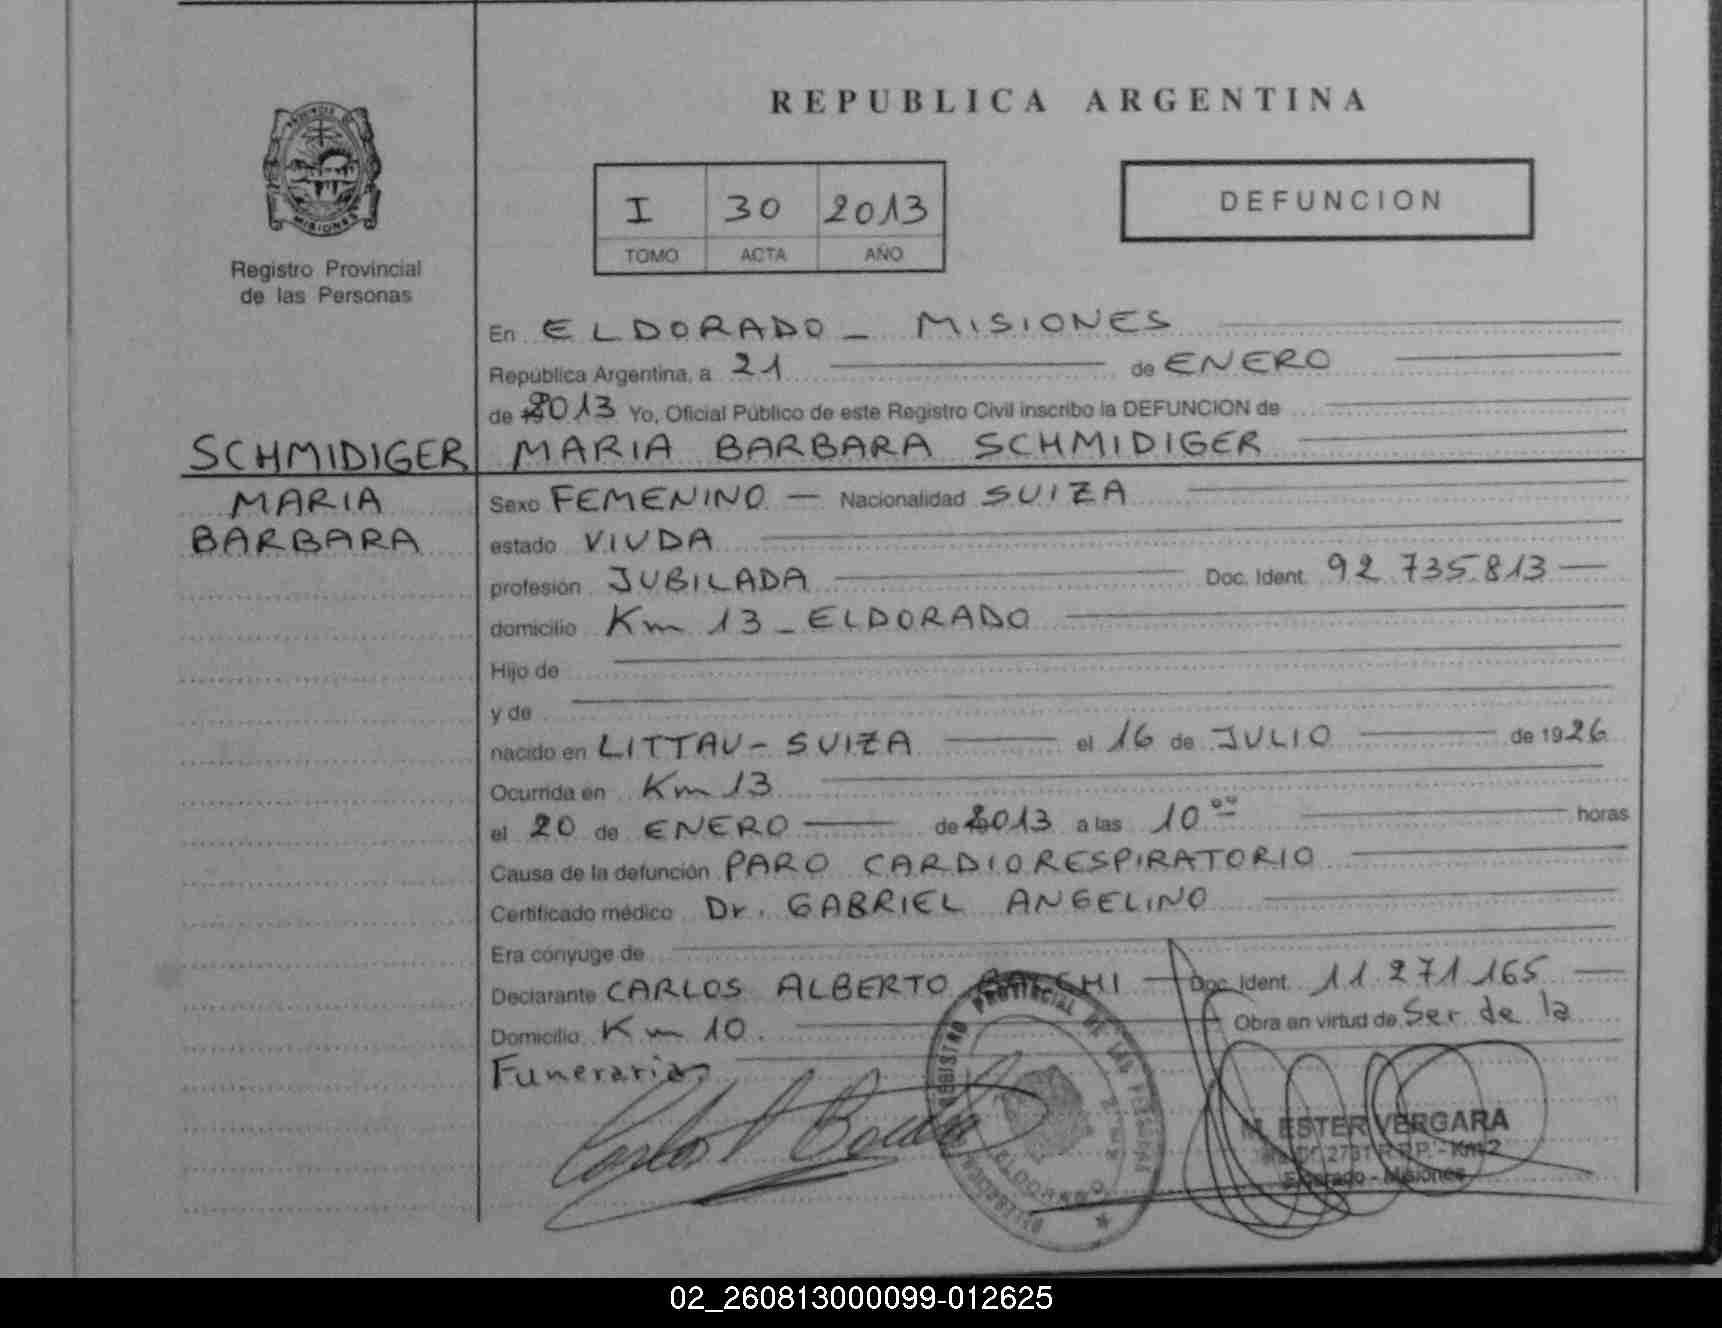 REPUBLICA ARGENTINA
PROVINCIA DE
MISIONES
Registro Provincial
de las Personas
I 30 2013
TOMO ACTA AÑO
DEFUNCION
En ELDORADO - MISIONES
República Argentina, a 21 de ENERO
de 2013 Yo, Oficial Público de este Registro Civil inscribo la DEFUNCION de
MARIA BARBARA SCHMIDIGER
SCHMIDIGER
MARIA
BARBARA
Sexo FEMENINO - Nacionalidad SUIZA
estado VIUDA
profesión JUBILADA Doc. Ident. 92.735.813
domicilio Km 13 - ELDORADO
Hijo de
y de
nacido en LITTAU - SUIZA el 16 de JULIO de 1926
Ocurrida en Km 13
el 20 de ENERO de 2013 a las 10 00 horas
Causa de la defunción PARO CARDIORESPIRATORIO
Certificado médico Dr. GABRIEL ANGELINO
Era cónyuge de
Declarante CARLOS ALBERTO Doc. Ident. 11.271.165
Domicilio Km 10. Obra en virtud de Ser de la
Funeraria
REGISTRO PROVINCIAL DE LAS PERSONAS
ELDORADO
M. ESTER VERGARA
R.P. - Km 2
Eldorado - Misiones
02_260813000099-012625